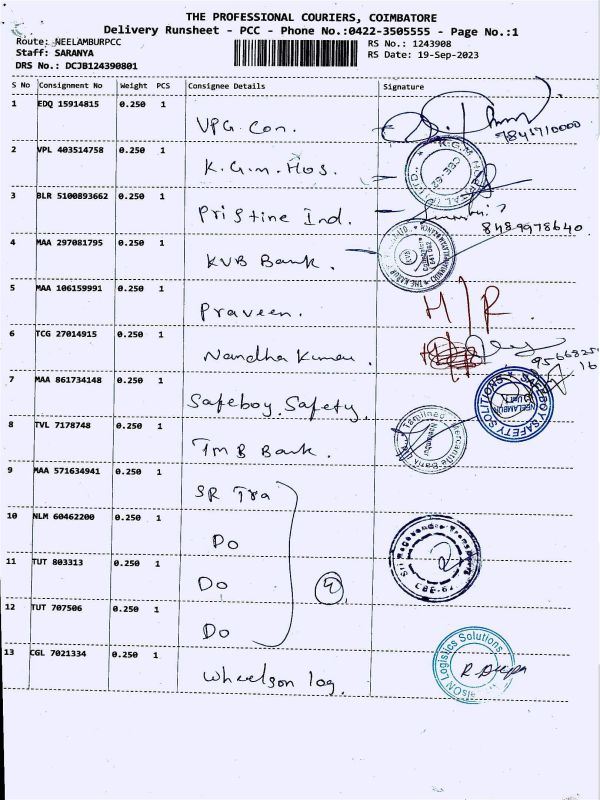 THE PROFESSIONAL COURIERS, COIMBATORE
Delivery Runsheet - PCC - Phone No.:0422-3505555 - Page No.:1
Route: NEELAMBURPCC
RS No.: 1243908
Staff: SARANYA
RS Date: 19-Sep-2023
DRS No.: DCJB124390801
S No Consignment No Weight PCS Consignee Details Signature
1 EDQ 15914815 0.250 1 VPG. Con. 9841710000
2 VPL 403514758 0.250 1 K.G.m. Hos.
3 BLR 5100893662 0.250 1 Pristine Ind. 8489978640
4 MAA 297081795 0.250 1 KVB Bank.
5 MAA 106159991 0.250 1 Praveen. H/R.
6 TCG 27014915 0.250 1 Nandha Kumar.
7 MAA 861734148 0.250 1 Safeboy. Safety. SAFEBOY SAFETY SOLUTIONS NEELAMBUR
8 TVL 7178748 0.250 1 TMB Bank. Tamilnad Mercantile Bank Neelambur
9 MAA 571634941 0.250 1 SR Tra
10 NLM 60462200 0.250 1 Do
11 TUT 803313 0.250 1 Do
12 TUT 707506 0.250 1 Do
13 CGL 7021334 0.250 1 Wheelson log. Logistics Solutions R. Deepa